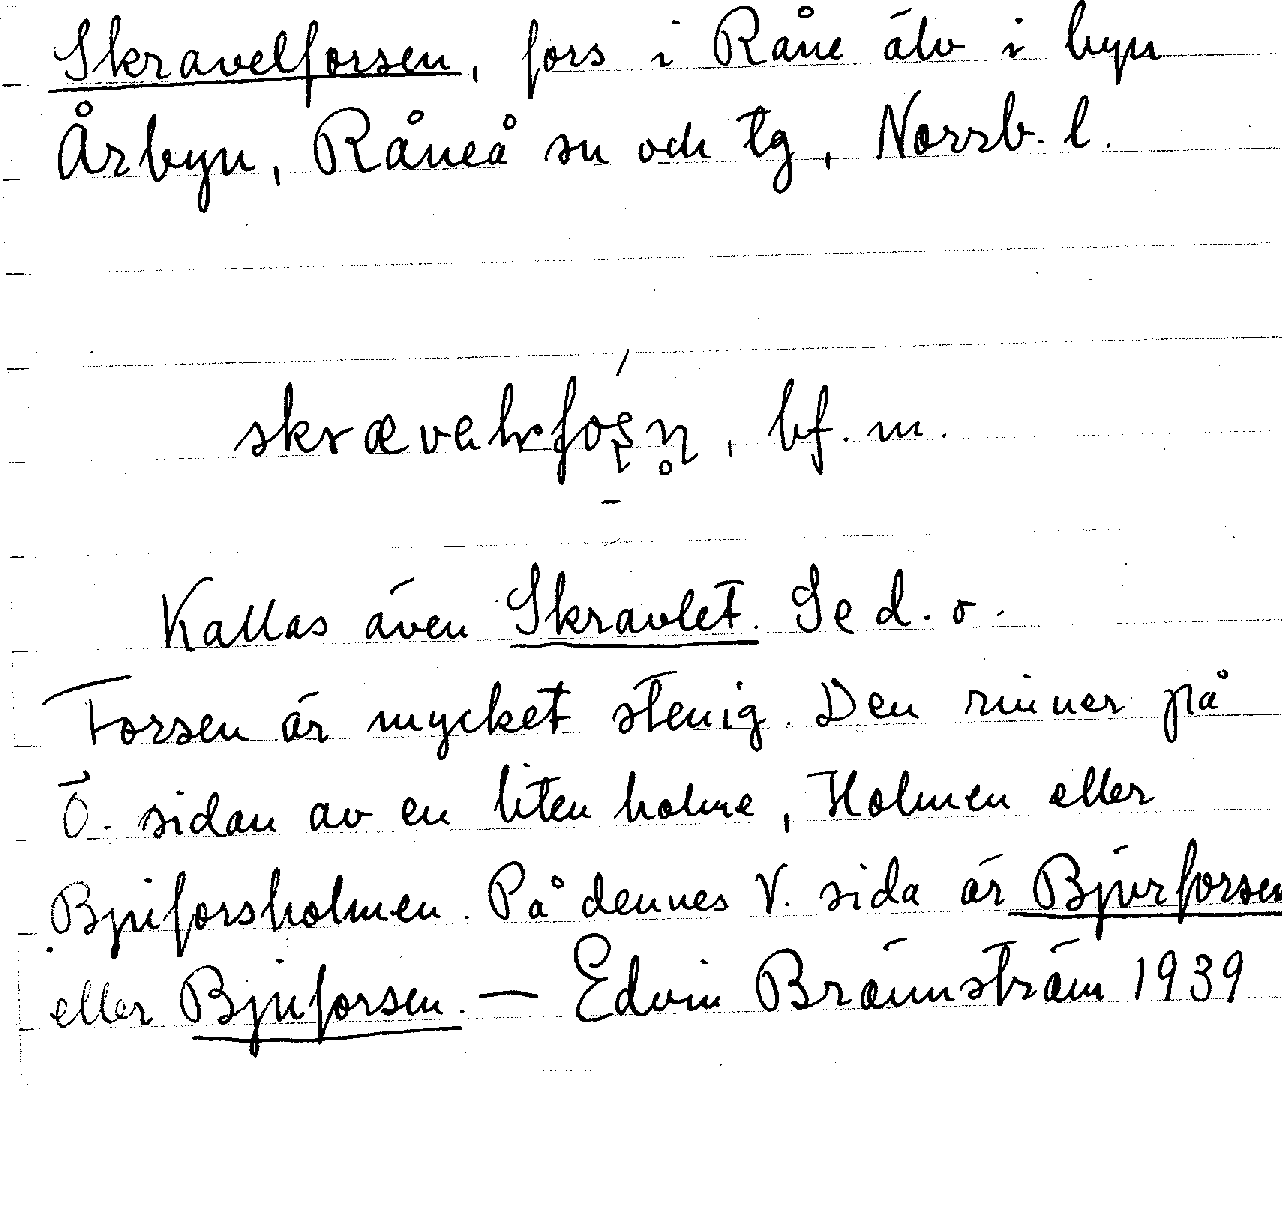 Skravelforsen, fors i Råne älv i byn
Årbyn, Råneå sn och tg, Norrb. l.
bf. m.
Kallas även Skravlet. Se d. o.
Forsen är mycket stenig. Den rinner på
Ö. sidan av en liten holme, Holmen eller
Bjuforsholmen. På dennes V. sida är Bjurforsen
eller Bjuforsen. — Edvin Brännström 1939